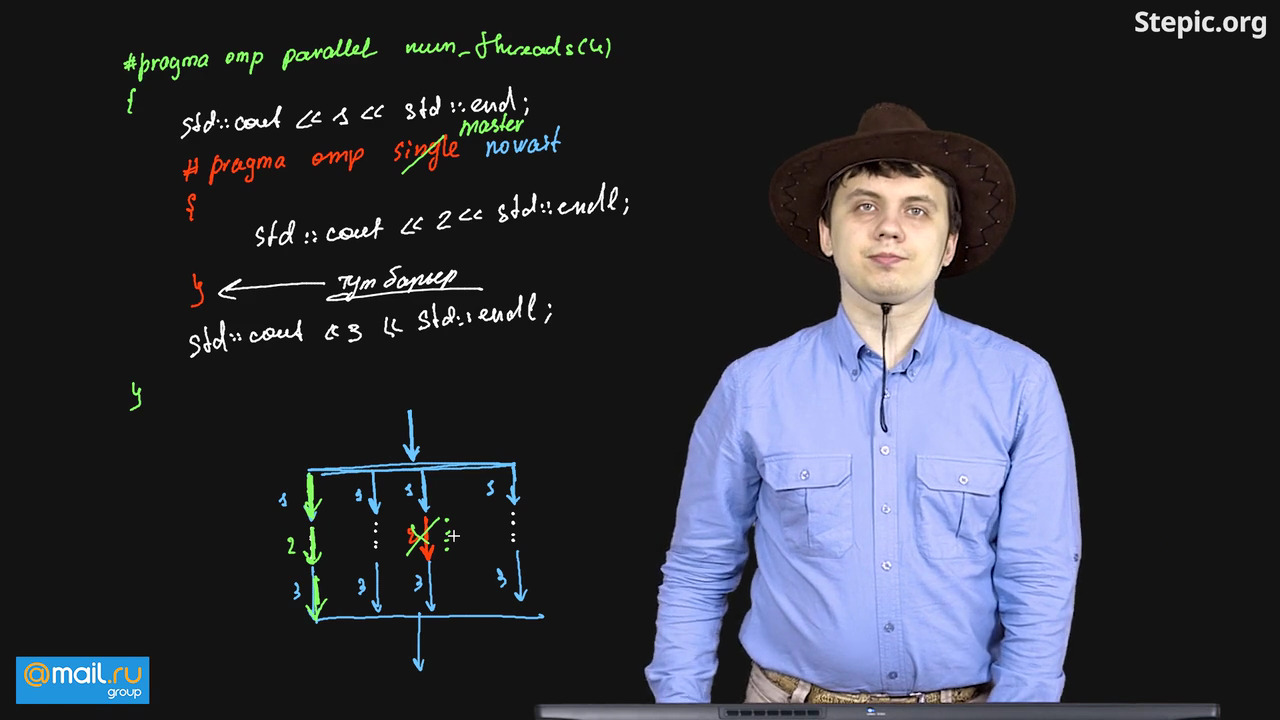 Stepic.org
#pragma omp parallel num_threads(4)
{
std::cout << 1 << std::end;
master
# pragma omp single nowait
{
std::cout << 2 << std::endl;
}
тут барьер
std::cout << 3 << std::endl;
}
1 1 1 1
2 2
3 3 3 3
@mail.ru
group